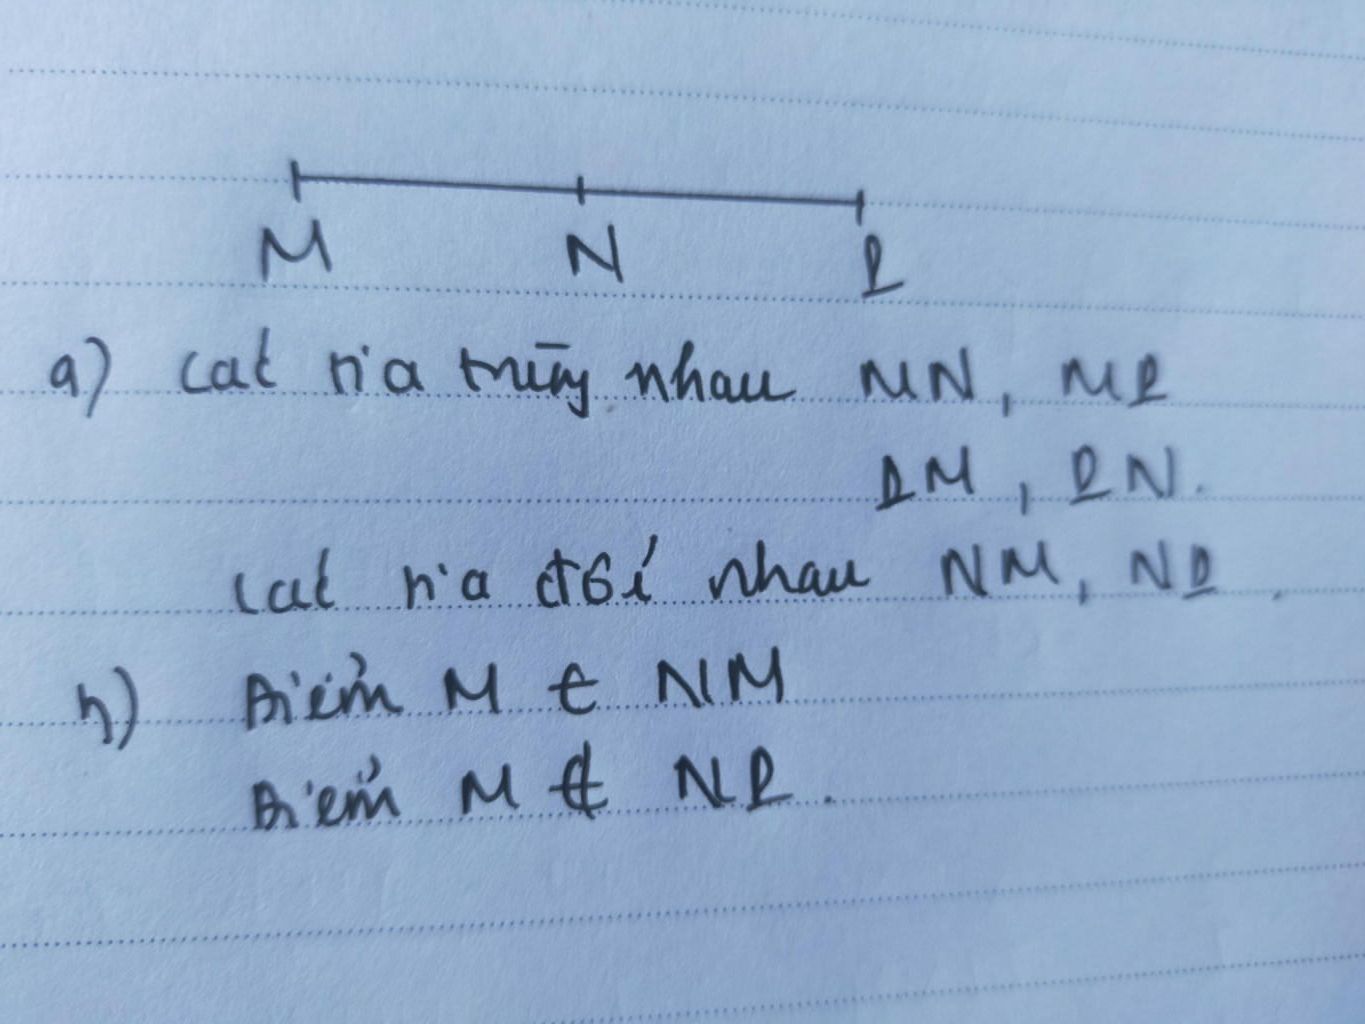 M N P
a) Các tia trùng nhau MN, MP
PM, PN.
Các tia đối nhau NM, NP.
b) Điểm M ∈ NM
Điểm M ∉ NP.